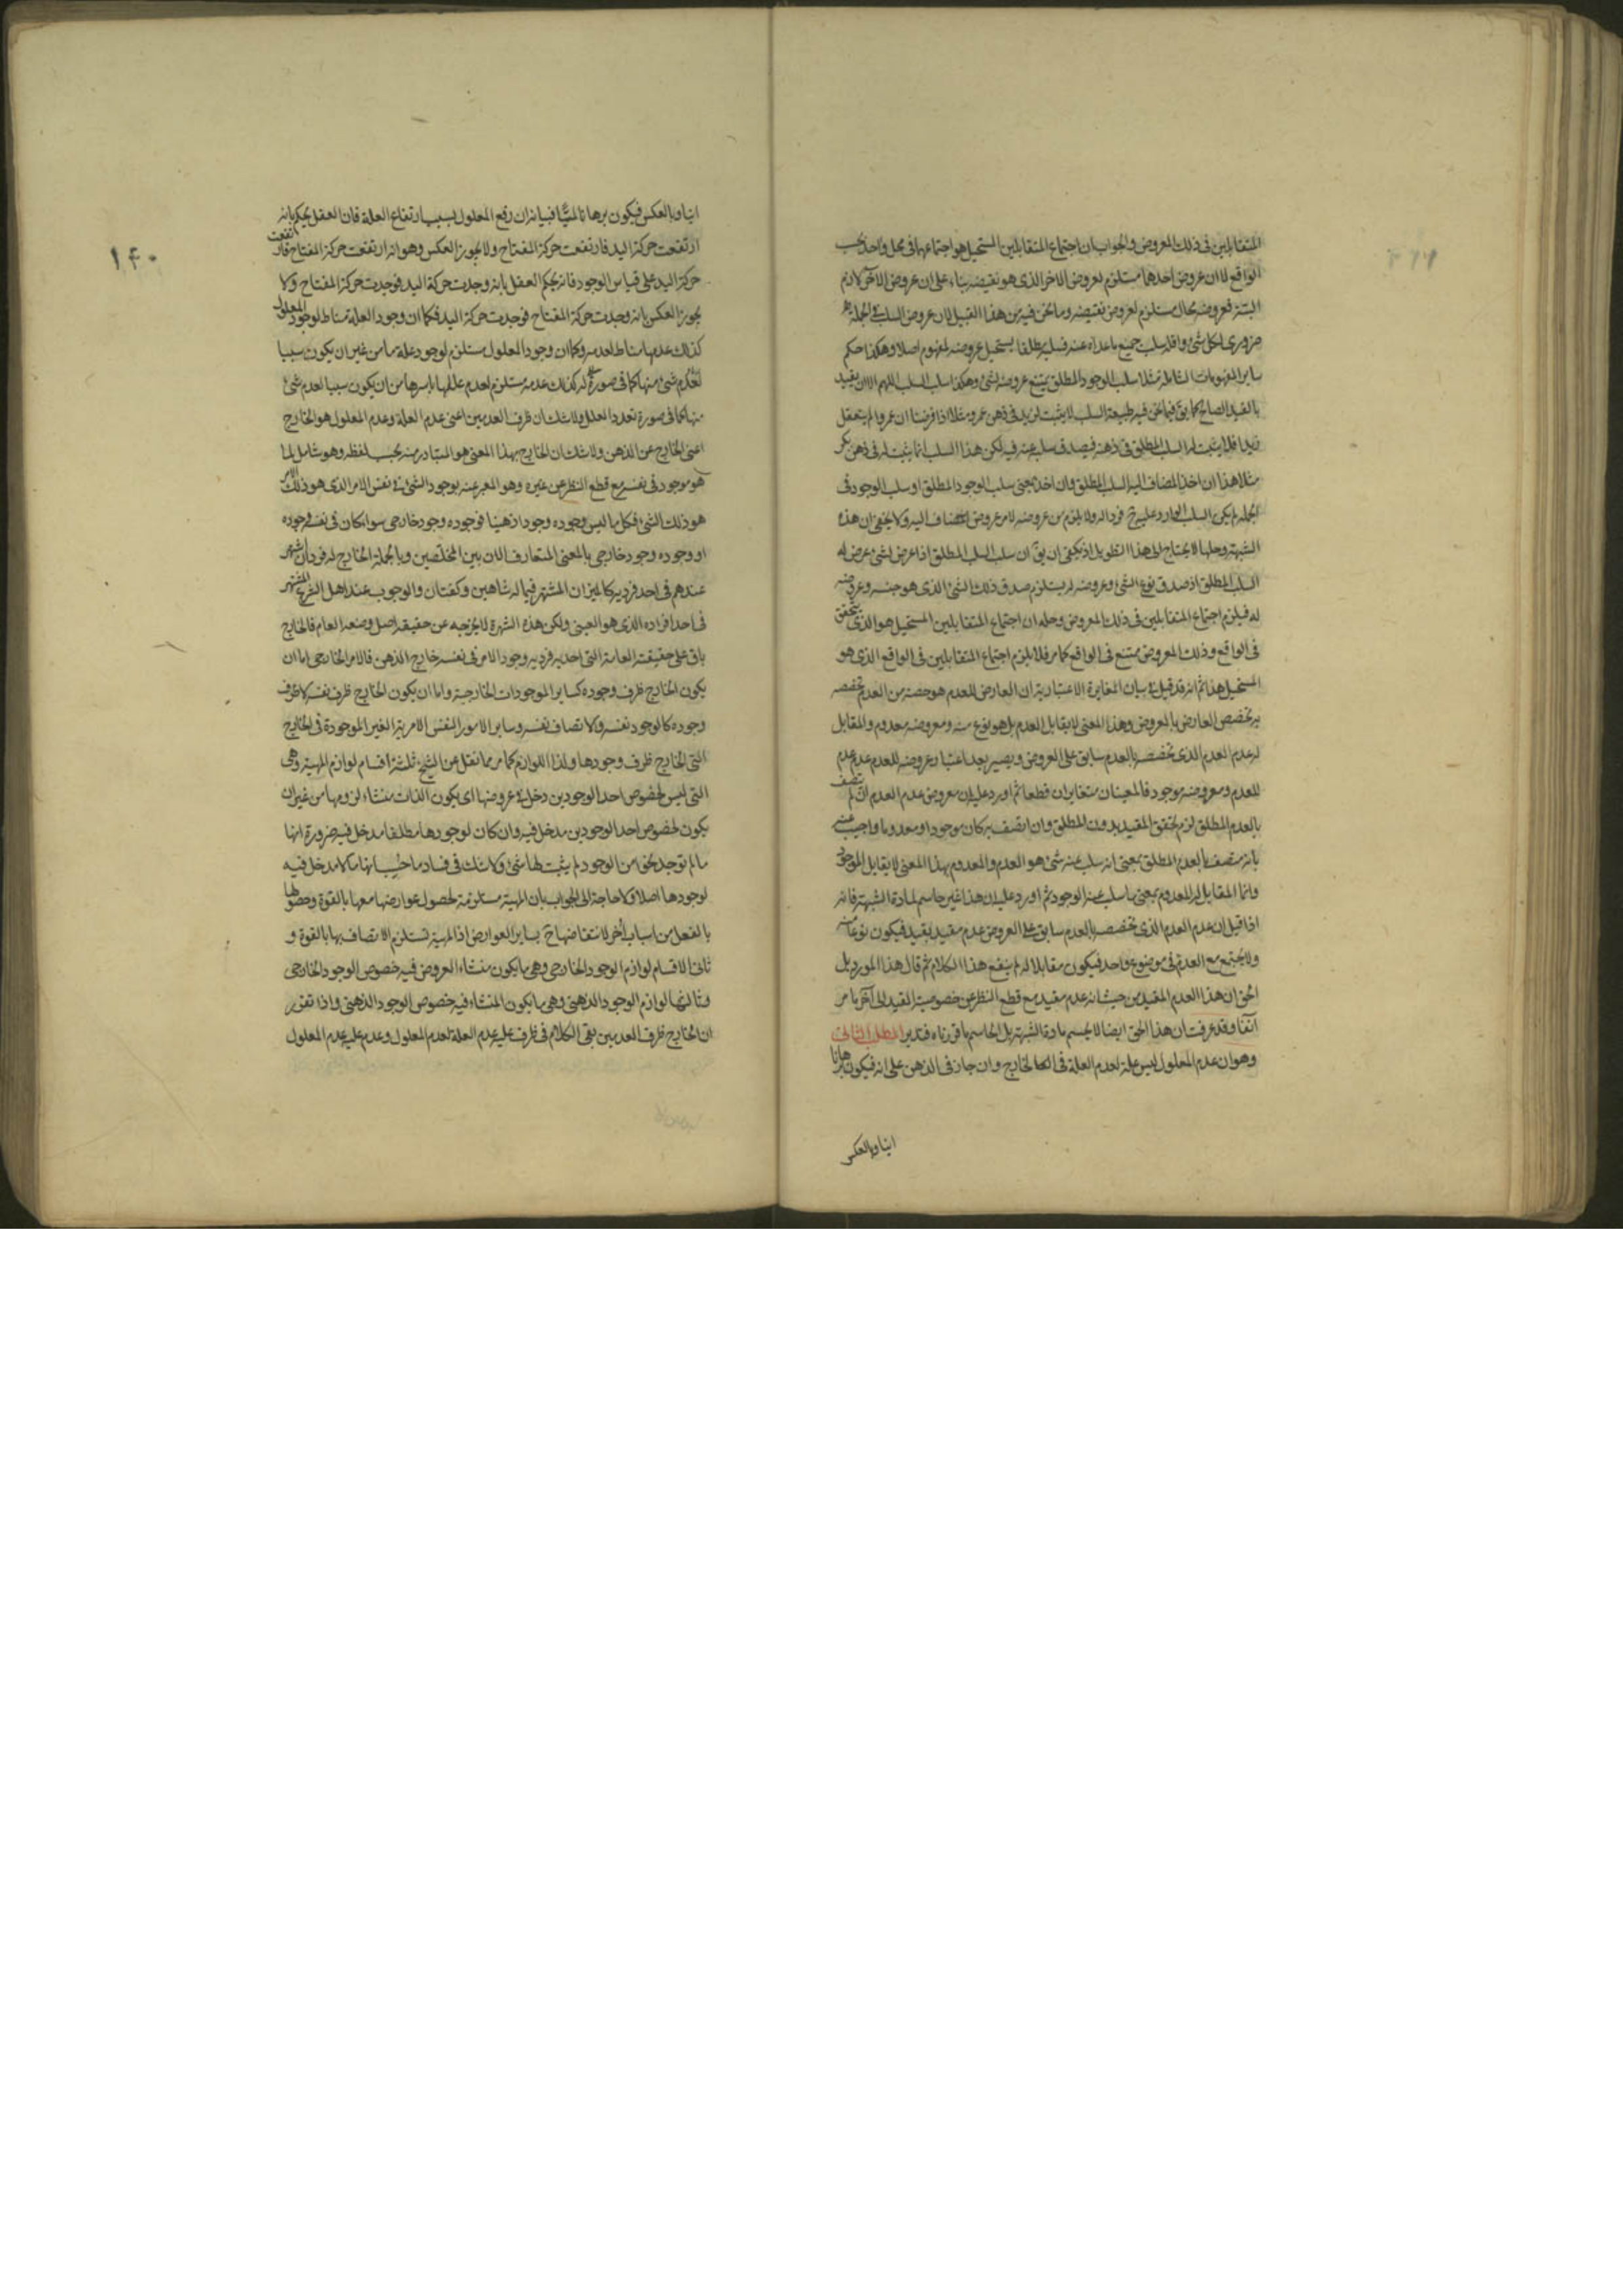 المتقابلين فى ذلك المعروض والجواب ان اجتماع المتقابلين المستحيل هو اجتماعهما فى محل واحد بحسب
الواقع لا ان عروض احدهما مستلزم لعروض الاخر الذى هو نقيضه بناء على ان عروض الاخر لازم
البتة فعروضه محال مستلزم لعروض نقيضه وما نحن فيه من هذا القبيل لان عروض السلب فى الجملة
ضرورى لكل شئ واقله سلب جميع ما عداه عنه فسلبه مطلقا يستحيل عروضه لمفهوم اصلا وهكذا حكم
ساير المفهومات الشاملة مثلا سلب الوجود المطلق يمتنع عروضه لشئ وهكذا سلب السلب اللهم الا ان يقيد
بالقيد الصالح كما يق فيما نحن فيه طبيعة السلب لا يثبت لزيد فى ذهن عمرو مثلا اذا فرضنا ان عمروا لم يتعقل
زيدا فلا يثبت له السلب المطلق فى ذهنه فيصدق سلبه عنه فيه لكن هذا السلب انما يثبت له فى ذهن بكر
مثلا هذا ان اخذ المضاف اليه السلب المطلق وان اخذ بمعنى سلب الوجود المطلق او سلب الوجود فى
الجملة لم يكن السلب الوارد عليه ح فردا له ولا يلزم من عروضه لامر عروض المضاف اليه ولا يخفى ان هذه
الشبهة وحلها لا يحتاج الى هذا التطويل اذ يكفى ان يق ان سلب السلب المطلق اذا عرض لشئ عرض له
السلب المطلق اذ صدق نوع الشئ وعروضه له يستلزم صدق ذلك الشئ الذى هو جنسه وعروضه
له فيلزم اجتماع المتقابلين فى ذلك المعروض وحله ان اجتماع المتقابلين المستحيل هو الذى يتحقق
فى الواقع وذلك المعروض ممتنع فى الواقع كما مر فلا يلزم اجتماع المتقابلين فى الواقع الذى هو
المستحيل هذا ثم انه قد قيل فى بيان المغايرة الاعتبارية ان العارض للعدم هو حصة من العدم تخصصه
بتخصص العارض بالمعروض وهذا المعنى لا يقابل العدم بل هو نوع منه ومعروضه معدوم والمقابل
له عدم العدم الذى تخصصه بالعدم سابق على العروض ويصير بعد اعتبار عروضه للعدم عدم عدم
للعدم ومعروضه موجود فالمعينان متغايران قطعا ثم اورد عليه ان معروض عدم العدم ان لم يتصف
بالعدم المطلق لزم تحقق المقيد بدون المطلق وان اتصف به كان موجودا ومعدوما واجيب عنه
بانه متصف بالعدم المطلق بمعنى انه سلب عنه شئ هو العدم والمعدوم بهذا المعنى لا يقابل الموجود
وانما المقابل له المعدوم بمعنى ما سلب عنه الوجود ثم اورد عليه ان هذا غير حاسم لمادة الشبهة فانه
اذا قيل ان عدم العدم الذى تخصصه بالعدم سابق على العروض عدم مقيد بقيد فيكون نوعا منه
ولا يجتمع مع العدم فى موضوع واحد فيكون مقابلا له لم ينفع هذا الكلام ثم قال هذا المورد بل
الحق ان هذا العدم المقيد من حيث انه عدم مقيد مع قطع النظر عن خصوصية القيد الى آخر ما مر
آنفا وقد عرفت ان هذا الحق ايضا لا يحسم مادة الشبهة بل الحاسم ما قررناه فتدبر المطلب الثانى
وهو ان عدم المعلول ليس علة لعدم العلة فى الخارج وان جاز فى الذهن على انه فيكون برهانا
انيا وبالعكس
۱۴۰
انيا وبالعكس فيكون برهانا لميًّا فبيانه ان رفع المعلول بسبب ارتفاع العلة فان العقل يحكم بانه
ارتفعت حركة اليد فارتفعت حركة المفتاح ولا يجوز العكس وهو انه ارتفعت حركة المفتاح فارتفعت
حركة اليد على قياس الوجود فانه يحكم العقل بانه وجدت حركة اليد فوجدت حركة المفتاح ولا
يجوز العكس بانه وجدت حركة المفتاح فوجدت حركة اليد فكما ان وجود العلة مناط لوجود المعلول
كذلك عدمها مناط لعدمه وكما ان وجود المعلول مستلزم لوجود علة ما من غير ان يكون سببا
لعدم شئ منها كما فى صورة له كذلك عدمه مستلزم لعدم عللها باسرها من ان يكون سببا لعدم شئ
منها كما فى صورة تعدد العلل ولا شك ان ظرف العدمين اعنى عدم العلة وعدم المعلول هو الخارج
اعنى الخارج عن الذهن ولا شك ان الخارج بهذا المعنى هو المتبادر منه بحسب لفظه وهو شامل لما
هو موجود فى نفسه مع قطع النظر عن غيره وهو المعبر عنه بوجود الشئ فى نفس الامر الذى هو ذلك الامر
هو ذلك الشئ فكل ما ليس وجوده وجودا ذهنيا فوجوده وجود خارجى سواء كان فى نفسه وجوده
او وجوده وجود خارجى بالمعنى المتعارف الان بين المحصلين وبالجملة الخارج له فردان شهر
عندهم فى احد فرديه كالميزان المشتهر فيما له شاهين وكفتان والوجوب عند اهل الشرع المشتهر
فى احد افراده الذى هو العينى ولكن هذه الشهرة لا يخرجه عن حقيقة اصل وضعه العام فالخارج
باق على حقيقته العامة التى احد فرديه وجود الامر فى نفسه خارج الذهن فالامر الخارجى اما ان
يكون الخارج ظرف وجوده كساير الموجودات الخارجية واما ان يكون الخارج ظرف نفسه لا ظرف
وجوده كالوجود نفسه والاتصاف نفسه وساير الامور النفس الامرية الغير الموجودة فى الخارج
التى الخارج ظرف وجودها ولذا اللوازم كما مر مما نقل عن الشيخ ثلثة اقسام لوازم المهية وهى
التى ليس لخصوص احد الوجودين دخل فى عروضها اى يكون الذات منشاء لزومها من غير ان
يكون لخصوص احد الوجودين مدخل فيه وان كان لوجودها مطلقا مدخل فيه ضرورة انها
ما لم توجد بنحو من الوجود لم يثبت لها شئ ولا شك فى فساد ما حسب انها مما لا مدخل فيه
لوجودها اصلا ولا حاجة الى الجواب بان المهية مستلزمة لحصول عوارضها معها بالقوة وحصولها
بالفعل من اسباب أخر لانتقاضها ح بساير العوارض اذ المهية تستلزم الاتصاف بها بالقوة و
ثانى الاقسام لوازم الوجود الخارجى وهى ما يكون منشاء العروض فيه خصوص الوجود الخارجى
وثالثها لوازم الوجود الذهنى وهى ما يكون المنشاء فيه خصوص الوجود الذهنى واذا تقرر
ان الخارج ظرف العدمين بقى الكلام فى ظرف علية عدم العلة لعدم المعلول وعدم علية عدم المعلول